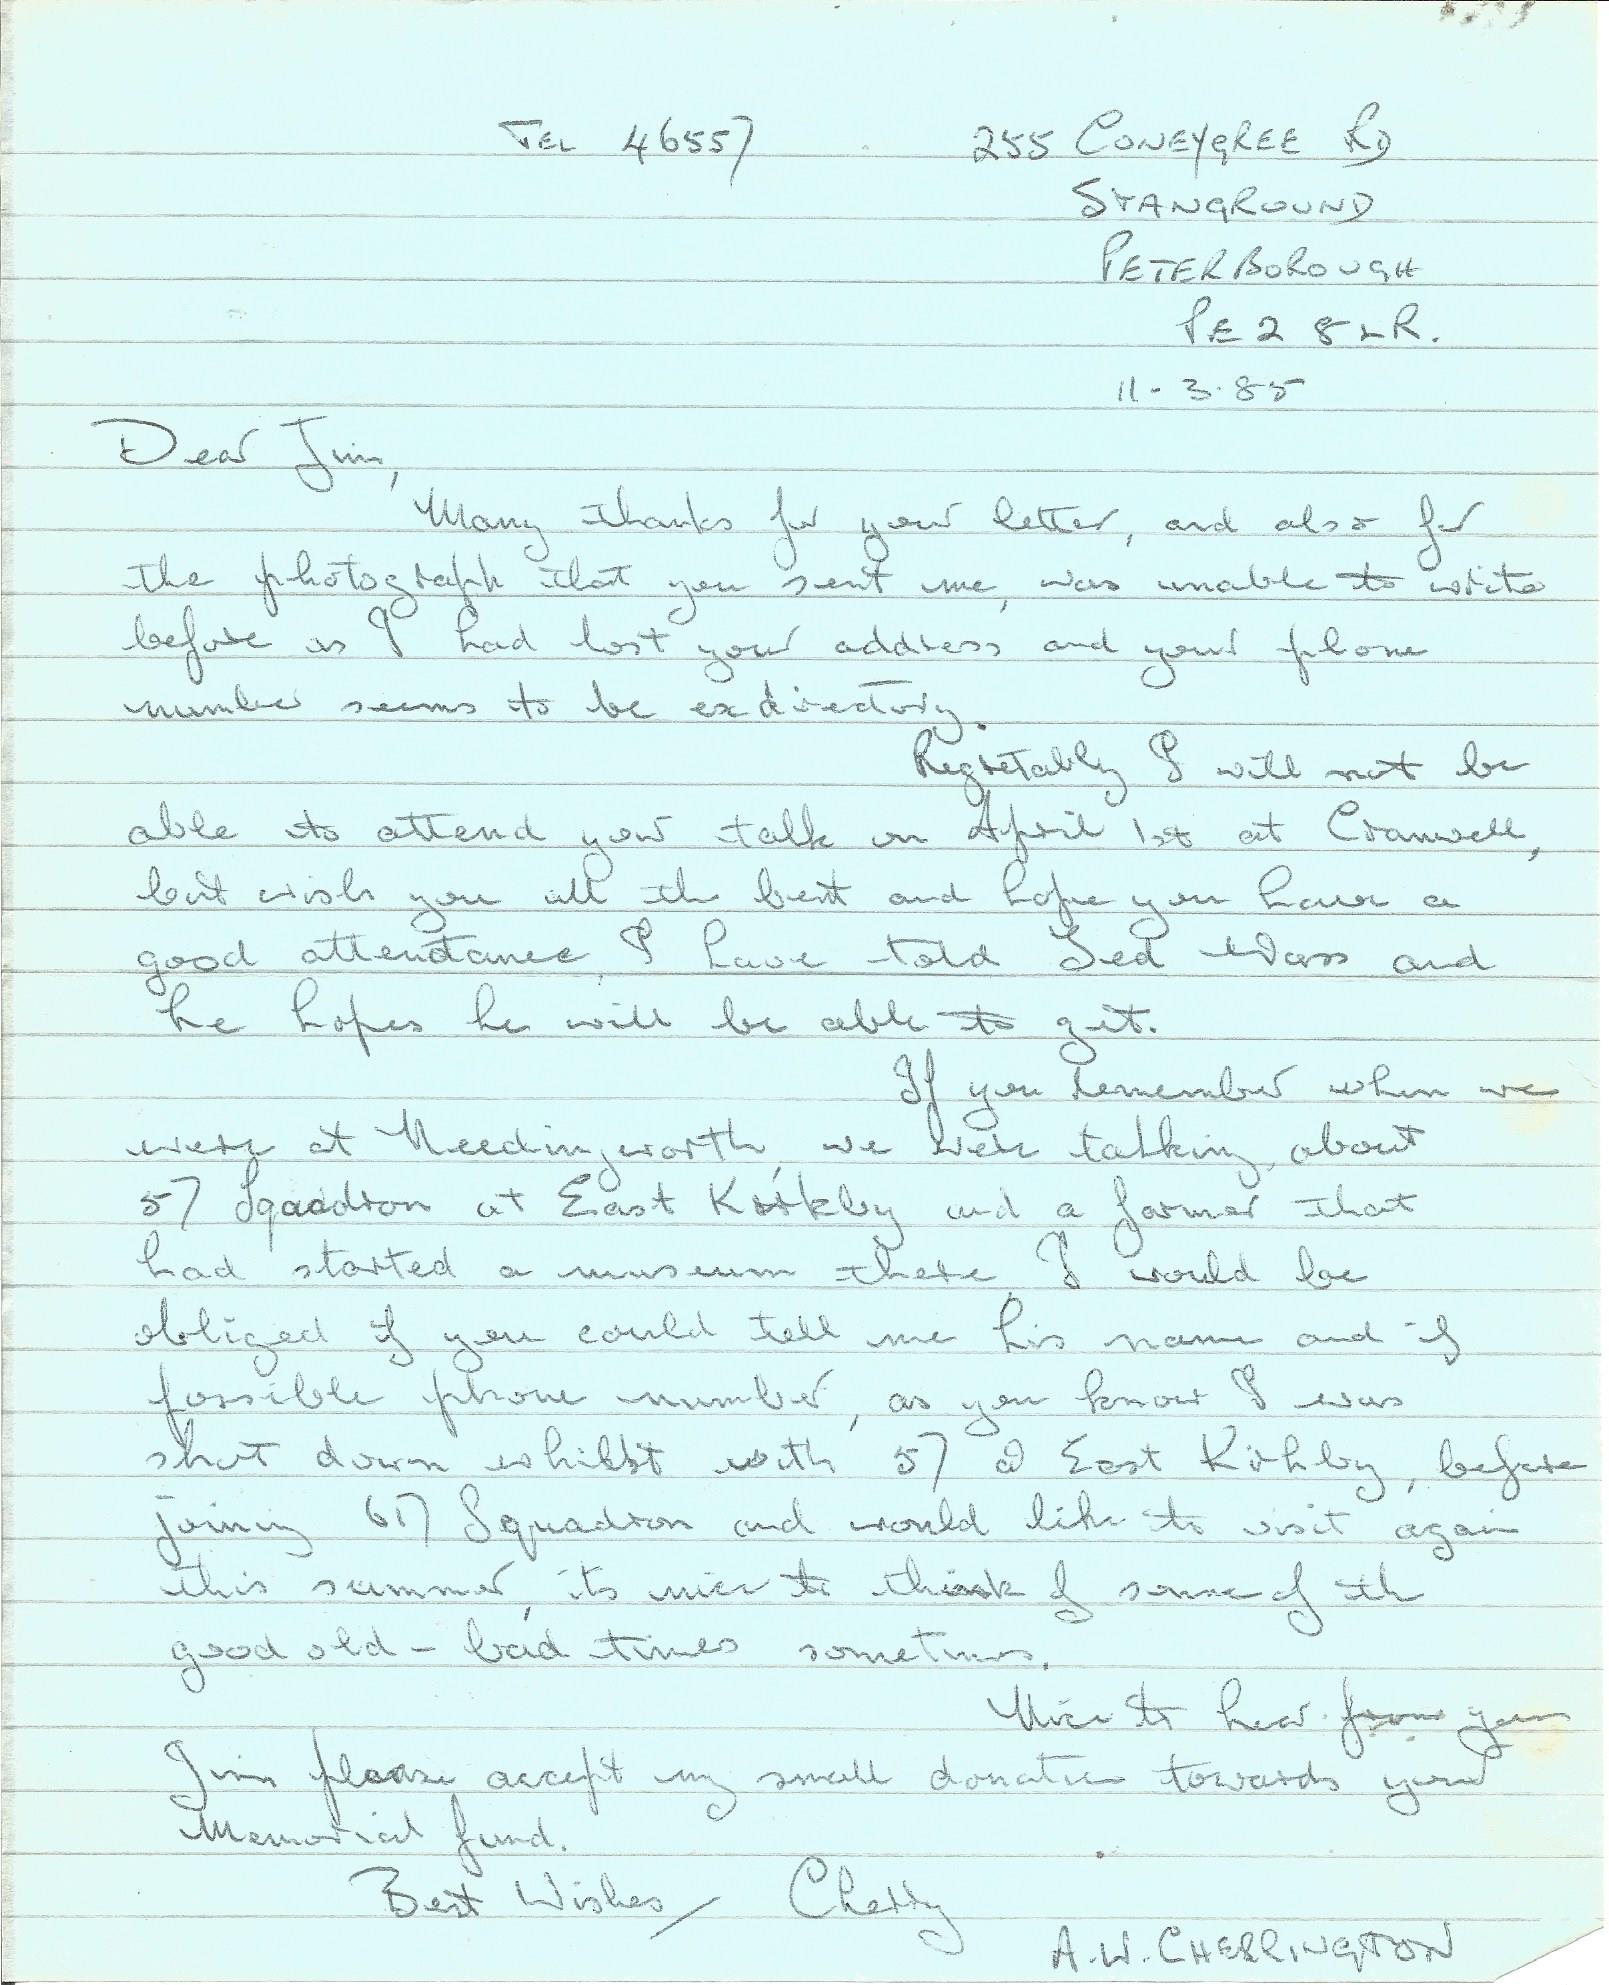 TEL 46557 255 CONEYGREE RD
STANGROUND
PETERBOROUGH
PE2 8LR.
11-3-85
Dear Jim,
Many thanks for your letter, and also for
the photograph that you sent me, was unable to write
before as I had lost your address and your phone
number seems to be exdirectory.
Regretably I will not be
able to attend your talk on April 1st at Cranwell,
but wish you all the best and hope you have a
good attendance, I have told Ted Wass and
he hopes he will be able to get.
If you remember when we
were at Needingworth, we were talking about
57 Sqaudron at East Kirkby and a farmer that
had started a museum there, I would be
obliged if you could tell me his name and if
possible phone number, as you know I was
shot down whilst with 57 @ East Kirkby, before
joining 617 Squadron and would like to visit again
this summer, its nice to think of some of the
good old - bad times sometimes.
Nice to hear from you
Jim please accept my small donation towards your
Memorial fund.
Best Wishes Cherry
A.W. CHERRINGTON